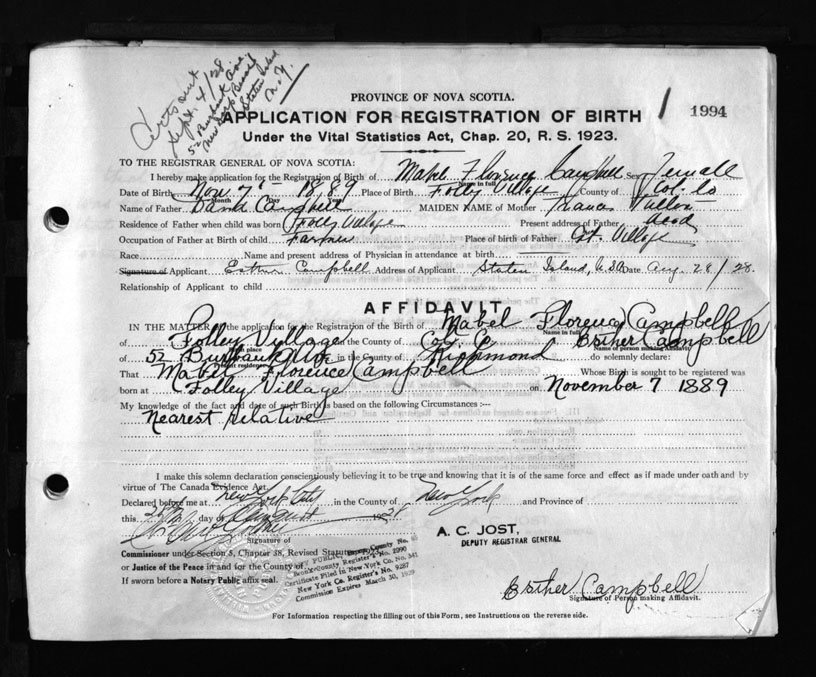 Sept. 4/28
52 Burbank Ave
Staten Island
N.Y.
PROVINCE OF NOVA SCOTIA.
1 1994
APPLICATION FOR REGISTRATION OF BIRTH
Under the Vital Statistics Act, Chap. 20, R. S. 1923.
TO THE REGISTRAR GENERAL OF NOVA SCOTIA:
I hereby make application for the Registration of Birth of Mable Florence Campbell Sex Female
Name in full
Date of Birth Nov 7 - 1889 Place of Birth Folly Village County of Col. Co
Month Day Year
Name of Father David Campbell MAIDEN NAME of Mother Frances
Residence of Father when child was born Folly Village Present address of Father dead
Occupation of Father at Birth of child Farmer Place of birth of Father Village
Race Name and present address of Physician in attendance at birth
Signature of Applicant Esther Campbell Address of Applicant Staten Island, U.S.A. Date Aug. 28/28.
Relationship of Applicant to child
AFFIDAVIT
IN THE MATTER of the application for the Registration of the Birth of Mabel Florence Campbell
Name in full
of Folley Village in the County of Col. Co Esther Campbell
place Name of person making Affidavit
of 52 Burbank Ave in the County of Richmond do solemnly declare:
Present residence
That Mabel Florence Campbell Whose Birth is sought to be registered was
born at Folley Village on November 7 1889
My knowledge of the fact and date of such Birth is based on the following Circumstances :—
Nearest relative
I make this solemn declaration conscientiously believing it to be true and knowing that it is of the same force and effect as if made under oath and by
virtue of The Canada Evidence Act.
Declared before me at New York City in the County of New York and Province of
this 28th day of August 1928
Signature of
A. C. JOST,
DEPUTY REGISTRAR GENERAL
Commissioner under Section 5, Chapter 38, Revised Statutes
or Justice of the Peace in and for the County of
If sworn before a Notary Public affix seal.
Bronx County Register's No. 2990
Certificate Filed in New York Co. No. 341
New York Co. Register's No. 9287
Commission Expires March 30, 1929
Esther Campbell
Signature of Person making Affidavit.
For Information respecting the filling out of this Form, see Instructions on the reverse side.